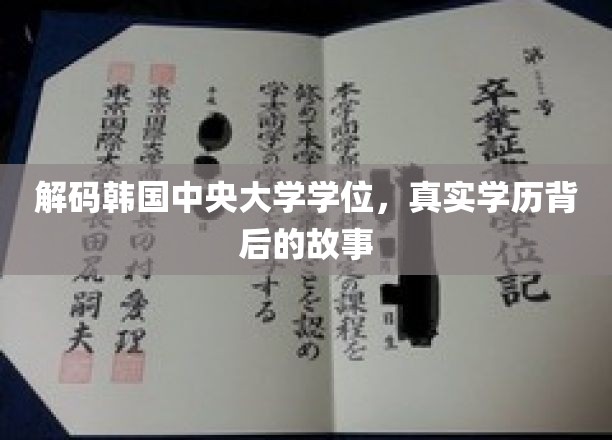 解码韩国中央大学学位，真实学历背
后的故事
第 号
卒業証書学位記
本学商学部 定の課程を
修めて本学 ことを認め
学士(商学)の学 する
平成
東京国際大学商 長田村愛理
東京国際大学長田尻嗣夫